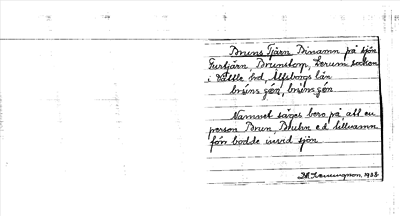 Bruns Tjärn Binamn på sjön
Furtjärn, Brunstorp, Lerum socken
i Vättle hd, Älfsborgs län
bruns
Namnet säges bero på, att en
person Brun, Bruhn e.d. tillnamn
förr bodde invid sjön
1938